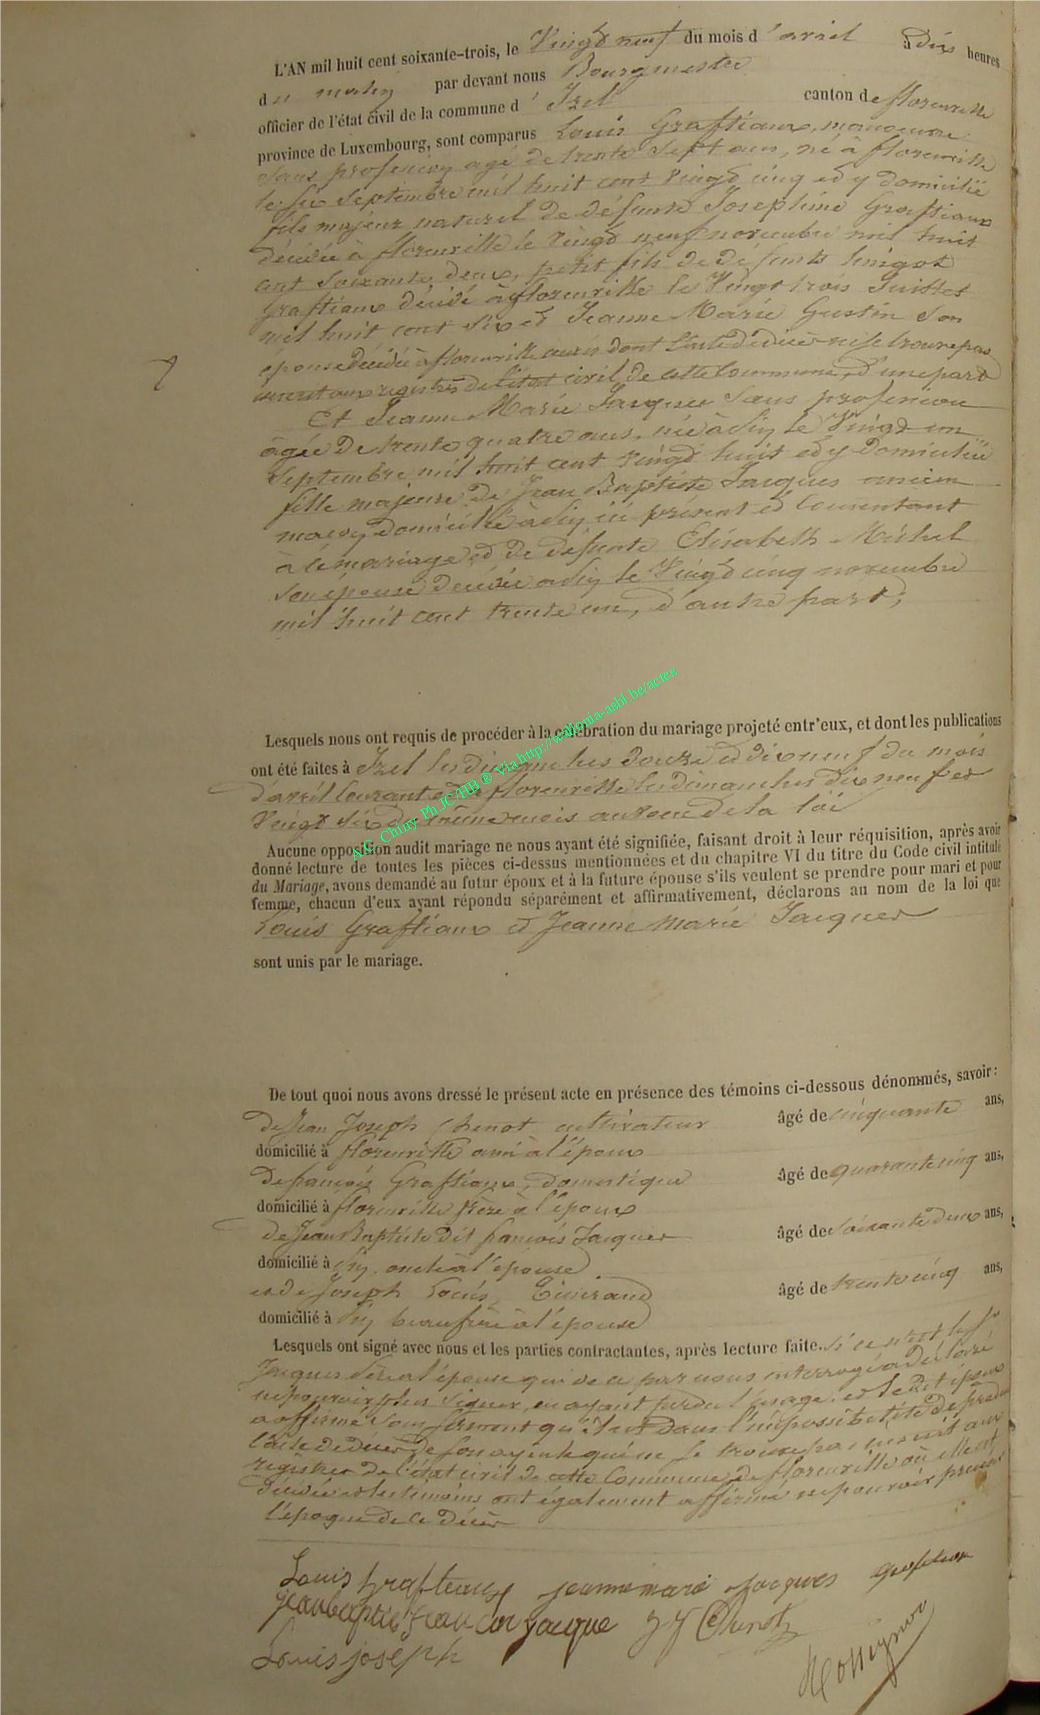 L'AN mil huit cent soixante-trois, le Vingt neuf du mois d'avril à dix heures
du matin par devant nous Bourgmestre
officier de l'état civil de la commune d'Izel canton de florenville
province de Luxembourg, sont comparus Louis Graftiaux, manoeuvre
sans profession agé de trente sept ans, né à florenville
le six Septembre mil huit cent Vingt cinq et y domicilié
fils majeur naturel de défunte Joséphine Graftiaux
décédée à florenville le Vingt neuf novembre mil huit
cent soixante deux, petit fils de défunts
Graftiaux décédé à florenville le Vingt trois Juillet
mil huit cent six et Jeanne Marie Gustin son
épouse décédée à florenville aussi dont l'acte de décès ne se trouve pas
inscrit aux registres de l'état civil de cette Commune, d'une part
Et Jeanne Marie Jacques sans profession
âgée de trente quatre ans, née à Siy le Vingt un
Septembre mil huit cent Vingt huit et y domiciliée
fille majeure de Jean Baptiste Jacques ancien
domicilié à Siy ici présent et consentant
à ce mariage et de défunte Elisabeth Michel
son épouse décédée à Siy le Vingt cinq novembre
mil huit cent trente un, d'autre part;
Lesquels nous ont requis de procéder à la célébration du mariage projeté entr'eux, et dont les publications
ont été faites à Izel les dimanches douze et dix neuf du mois
d'avril courant et à florenville les dimanches dix neuf et
Vingt six du même mois au voeu de la loi
Aucune opposition audit mariage ne nous ayant été signifiée, faisant droit à leur réquisition, après avoir
donné lecture de toutes les pièces ci-dessus mentionnées et du chapitre VI du titre du Code civil intitulé
du Mariage, avons demandé au futur époux et à la future épouse s'ils veulent se prendre pour mari et pour
femme, chacun d'eux ayant répondu séparément et affirmativement, déclarons au nom de la loi que
Louis Graftiaux et Jeanne Marie Jacques
sont unis par le mariage.
A.G. Chiny Ph JC/HB ® Via http://wallonia-asbl.be/actes
De tout quoi nous avons dressé le présent acte en présence des témoins ci-dessous dénommés, savoir:
de Jean Joseph Chenot cultivateur âgé de cinquante ans,
domicilié à florenville ami à l'époux
de françois Graftiaux, domestique âgé de quarante cinq ans,
domicilié à florenville frère à l'époux
de Jean Baptiste dit françois Jacques âgé de Soixante deux ans,
domicilié à Siy oncle à l'épouse
et de Joseph Louis âgé de trente cinq ans,
domicilié à Siy beaufrère à l'épouse
Lesquels ont signé avec nous et les parties contractantes, après lecture faite. si ce n'est le sr
Jacques père à l'épouse qui de ce par nous interrogé a déclaré
ne pouvoir plus signer, en ayant perdu l'usage. et ledit époux
a affirmé sous serment qu'il est dans l'impossibilité de produire
l'acte de décès de son ayeule qui ne se trouve pas inscrit aux
registres de l'état civil de cette Commune de florenville où elle est
décédée et les temoins ont également affirmé ne pouvoir préciser
l'époque de ce décès
Louis Grafteaux jeanne marie jacques
jeanbaptiste francois jacque JJ Chenot
Louis joseph